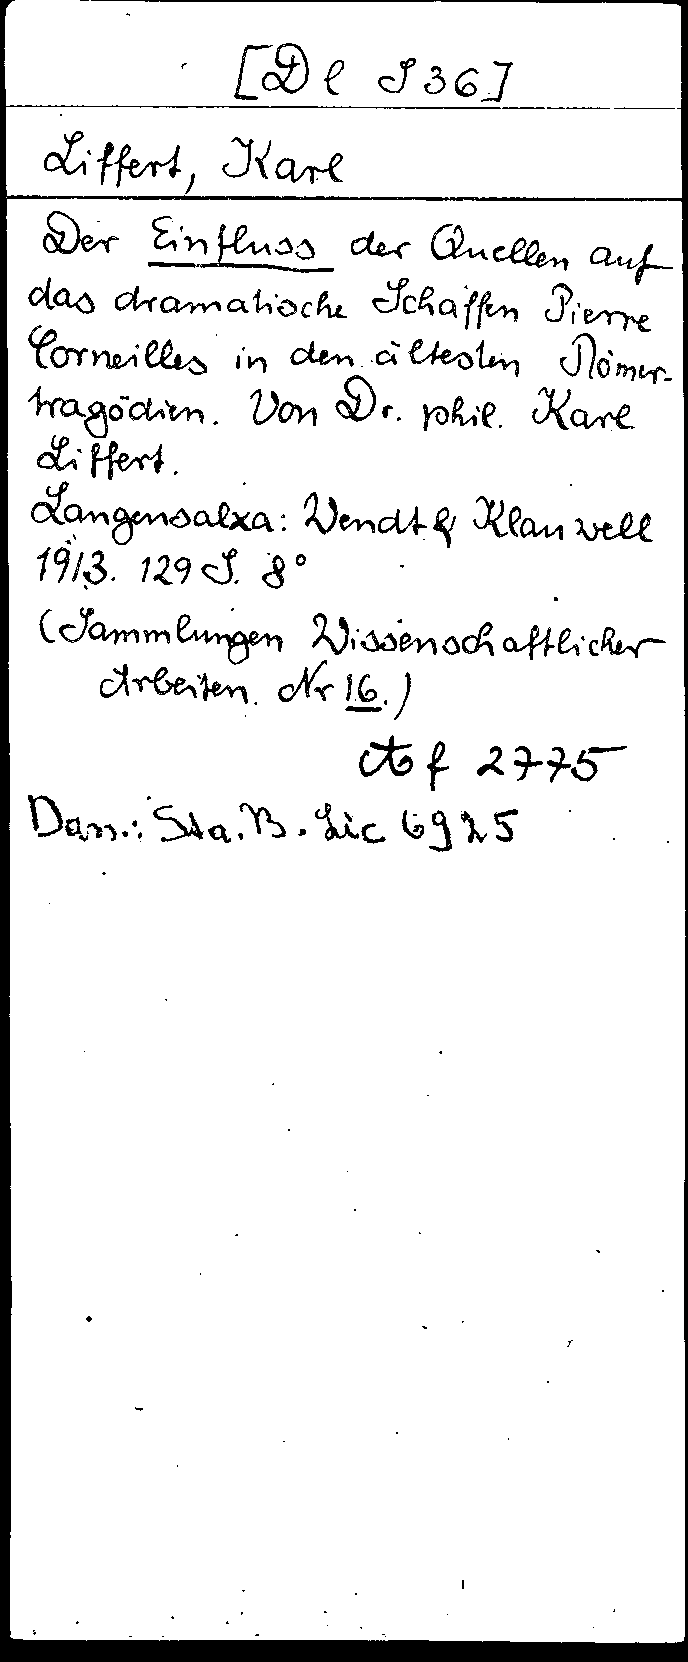 [Dl S 36]
Liffert, Karl
Der Einfluss der Quellen auf
das dramatische Schaffen Pierre
Corneilles in den ältesten Römer-
tragödien. Von Dr. phil. Karl
Liffert.
Langensalza: Wendt & Klauwell
1913. 129 S. 8°
(Sammlungen Wissenschaftlicher
Arbeiten. Nr 16.)
Af 2775
Dan.: Sta.B. Lic 6925